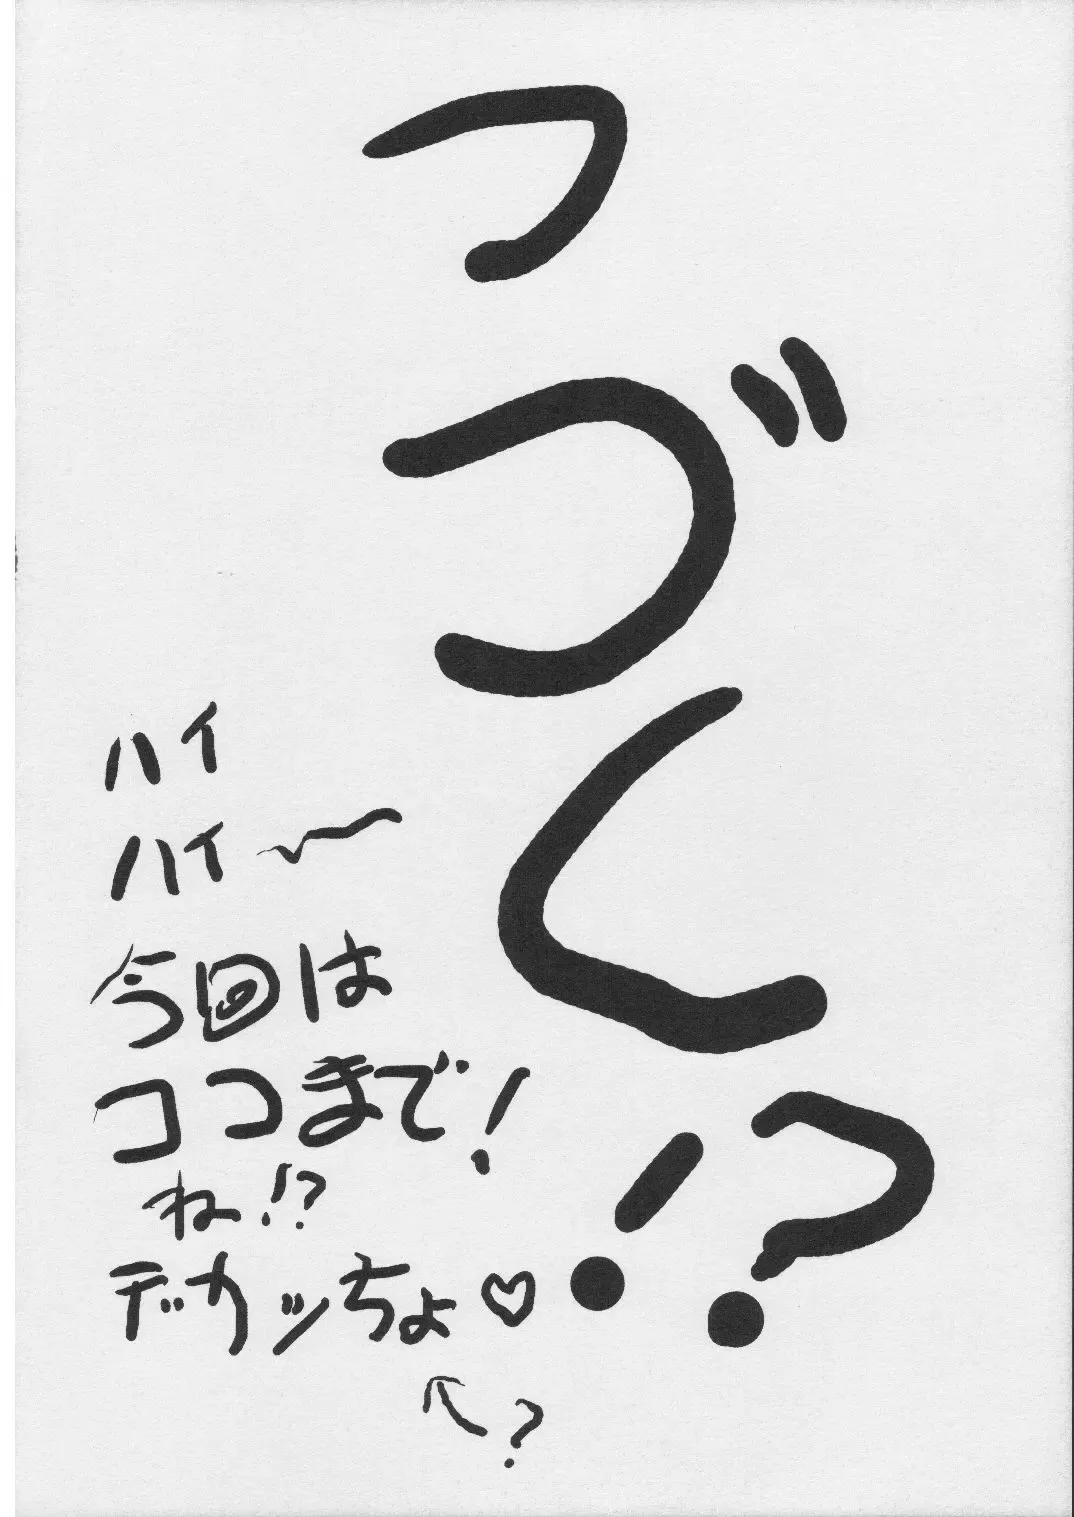 つづく!?
ハイ
ハイ〜
今回は
ココまで!
ね!?
デカッちょ♡
←?